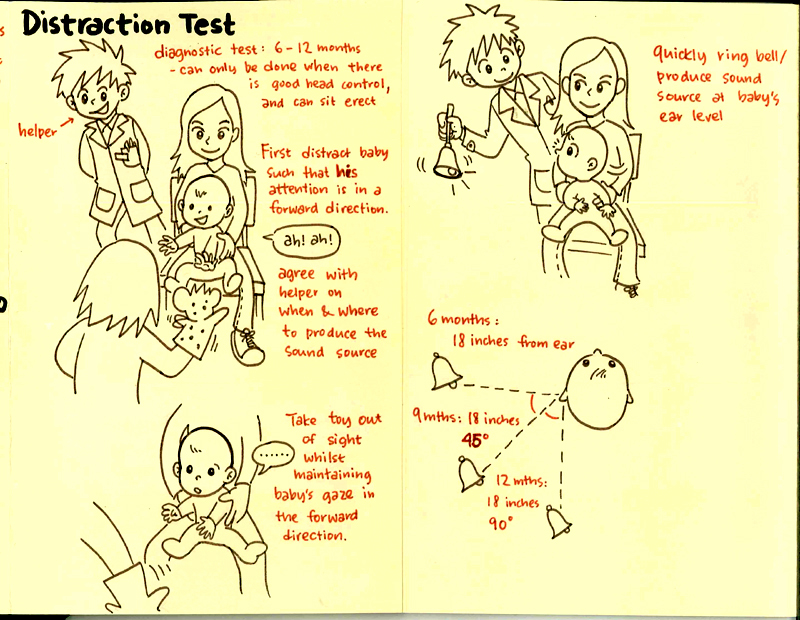 Distraction Test
diagnostic test: 6-12 months
- can only be done when there
is good head control,
and can sit erect
helper
First distract baby
such that his
attention is in a
forward direction.
ah! ah!
agree with
helper on
when & where
to produce the
sound source
Take toy out
of sight
whilst
maintaining
baby's gaze in
the forward
direction.
......
quickly ring bell/
produce sound
source at baby's
ear level
6 months:
18 inches from ear
9 mths: 18 inches
45°
12 mths:
18 inches
90°